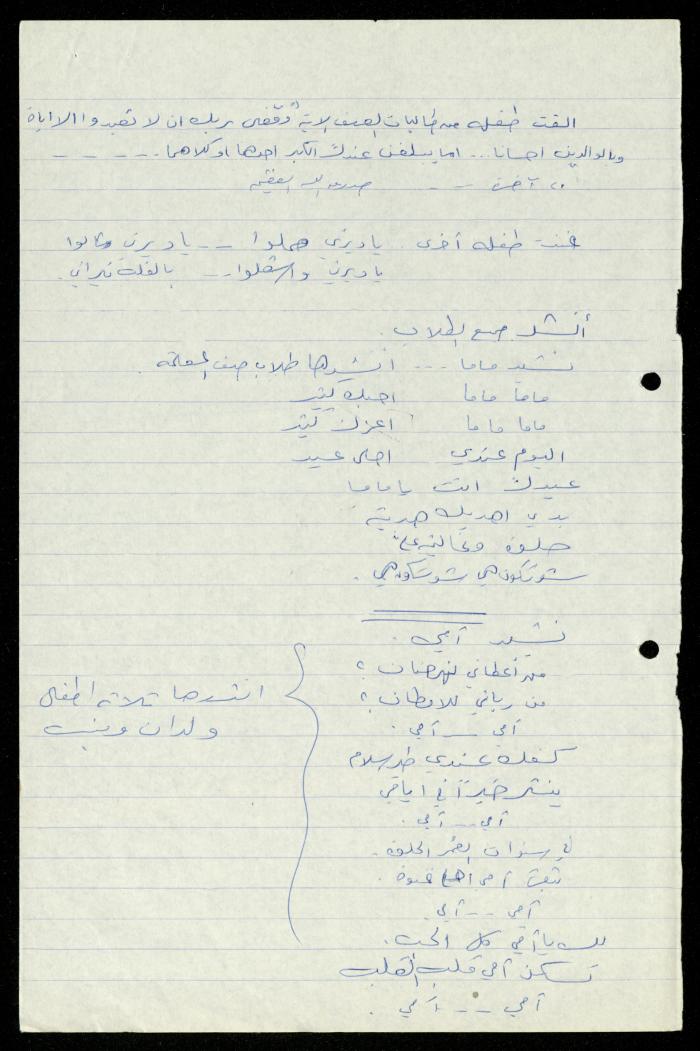 القت طفله من طالبات الصف الاية "وقضى ربك ان لا تعبدوا الا اياه
وبالوالدين احسانا... اما يبلغن عندك الكبر احدهما او كلاهما.. - - -
صدق الله العظيم
غنت طفله أخرى. ياديرتي هملوا -- ياديرتي وشالوا
ياديرتي واشعلوا-- بالغلة نيراني.
أنشد جميع الطلاب.
نشيد ماما ... انشدها طلاب صف المعلمة.
ماما ماما احبك كتير
ماما ماما اعزك كتير
اليوم عندي احلى عيد
عيدك انت يا ماما
بدي اهديك هدية
حلوة وغالية علي
شو تكون هي شو تكون هي.
نشيد أمي.
من أعطاني نهر حنان؟
من رباني للاوطان؟
أمي -- أمي.
كفك عندي طير سلام
ينشر خيراً في ايامي
أمي -- أمي.
في سنوات العمر الحلوة.
تبقى أمي احلى غنوة.
أمي -- أمي.
لك يا أمي كل الحب.
تسكن أمي قلب القلب
أمي -- أمي.
انشدها ثلاثة اطفال
ولدان وبنت